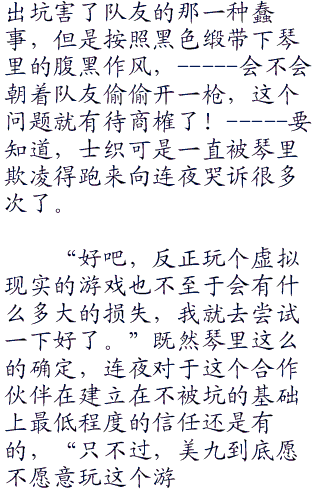 出坑害了队友的那一种蠢
事，但是按照黑色缎带下琴
里的腹黑作风，-----会不会
朝着队友偷偷开一枪，这个
问题就有待商榷了！-----要
知道，士织可是一直被琴里
欺凌得跑来向连夜哭诉很多
次了。
“好吧，反正玩个虚拟
现实的游戏也不至于会有什
么多大的损失，我就去尝试
一下好了。”既然琴里这么
的确定，连夜对于这个合作
伙伴在建立在不被坑的基础
上最低程度的信任还是有
的，“只不过，美九到底愿
不愿意玩这个游